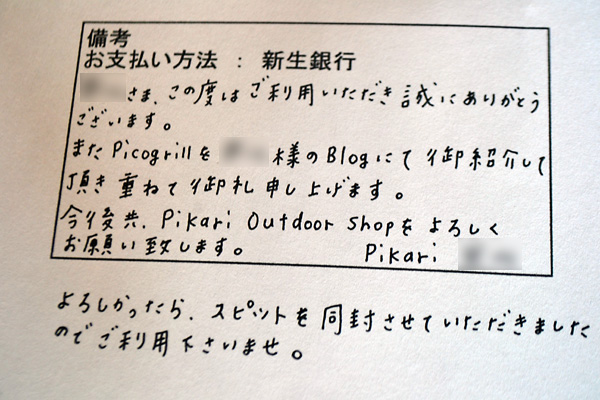 備考
お支払い方法 : 新生銀行
さま、この度はご利用いただき誠にありがとう
ございます。
またPicogrillを 様のBlogにて御紹介して
頂き重ねて御礼申し上げます。
今後共、Pikari Outdoor Shopをよろしく
お願い致します。 Pikari
よろしかったら、スピットを同封させていただきました
のでご利用下さいませ。